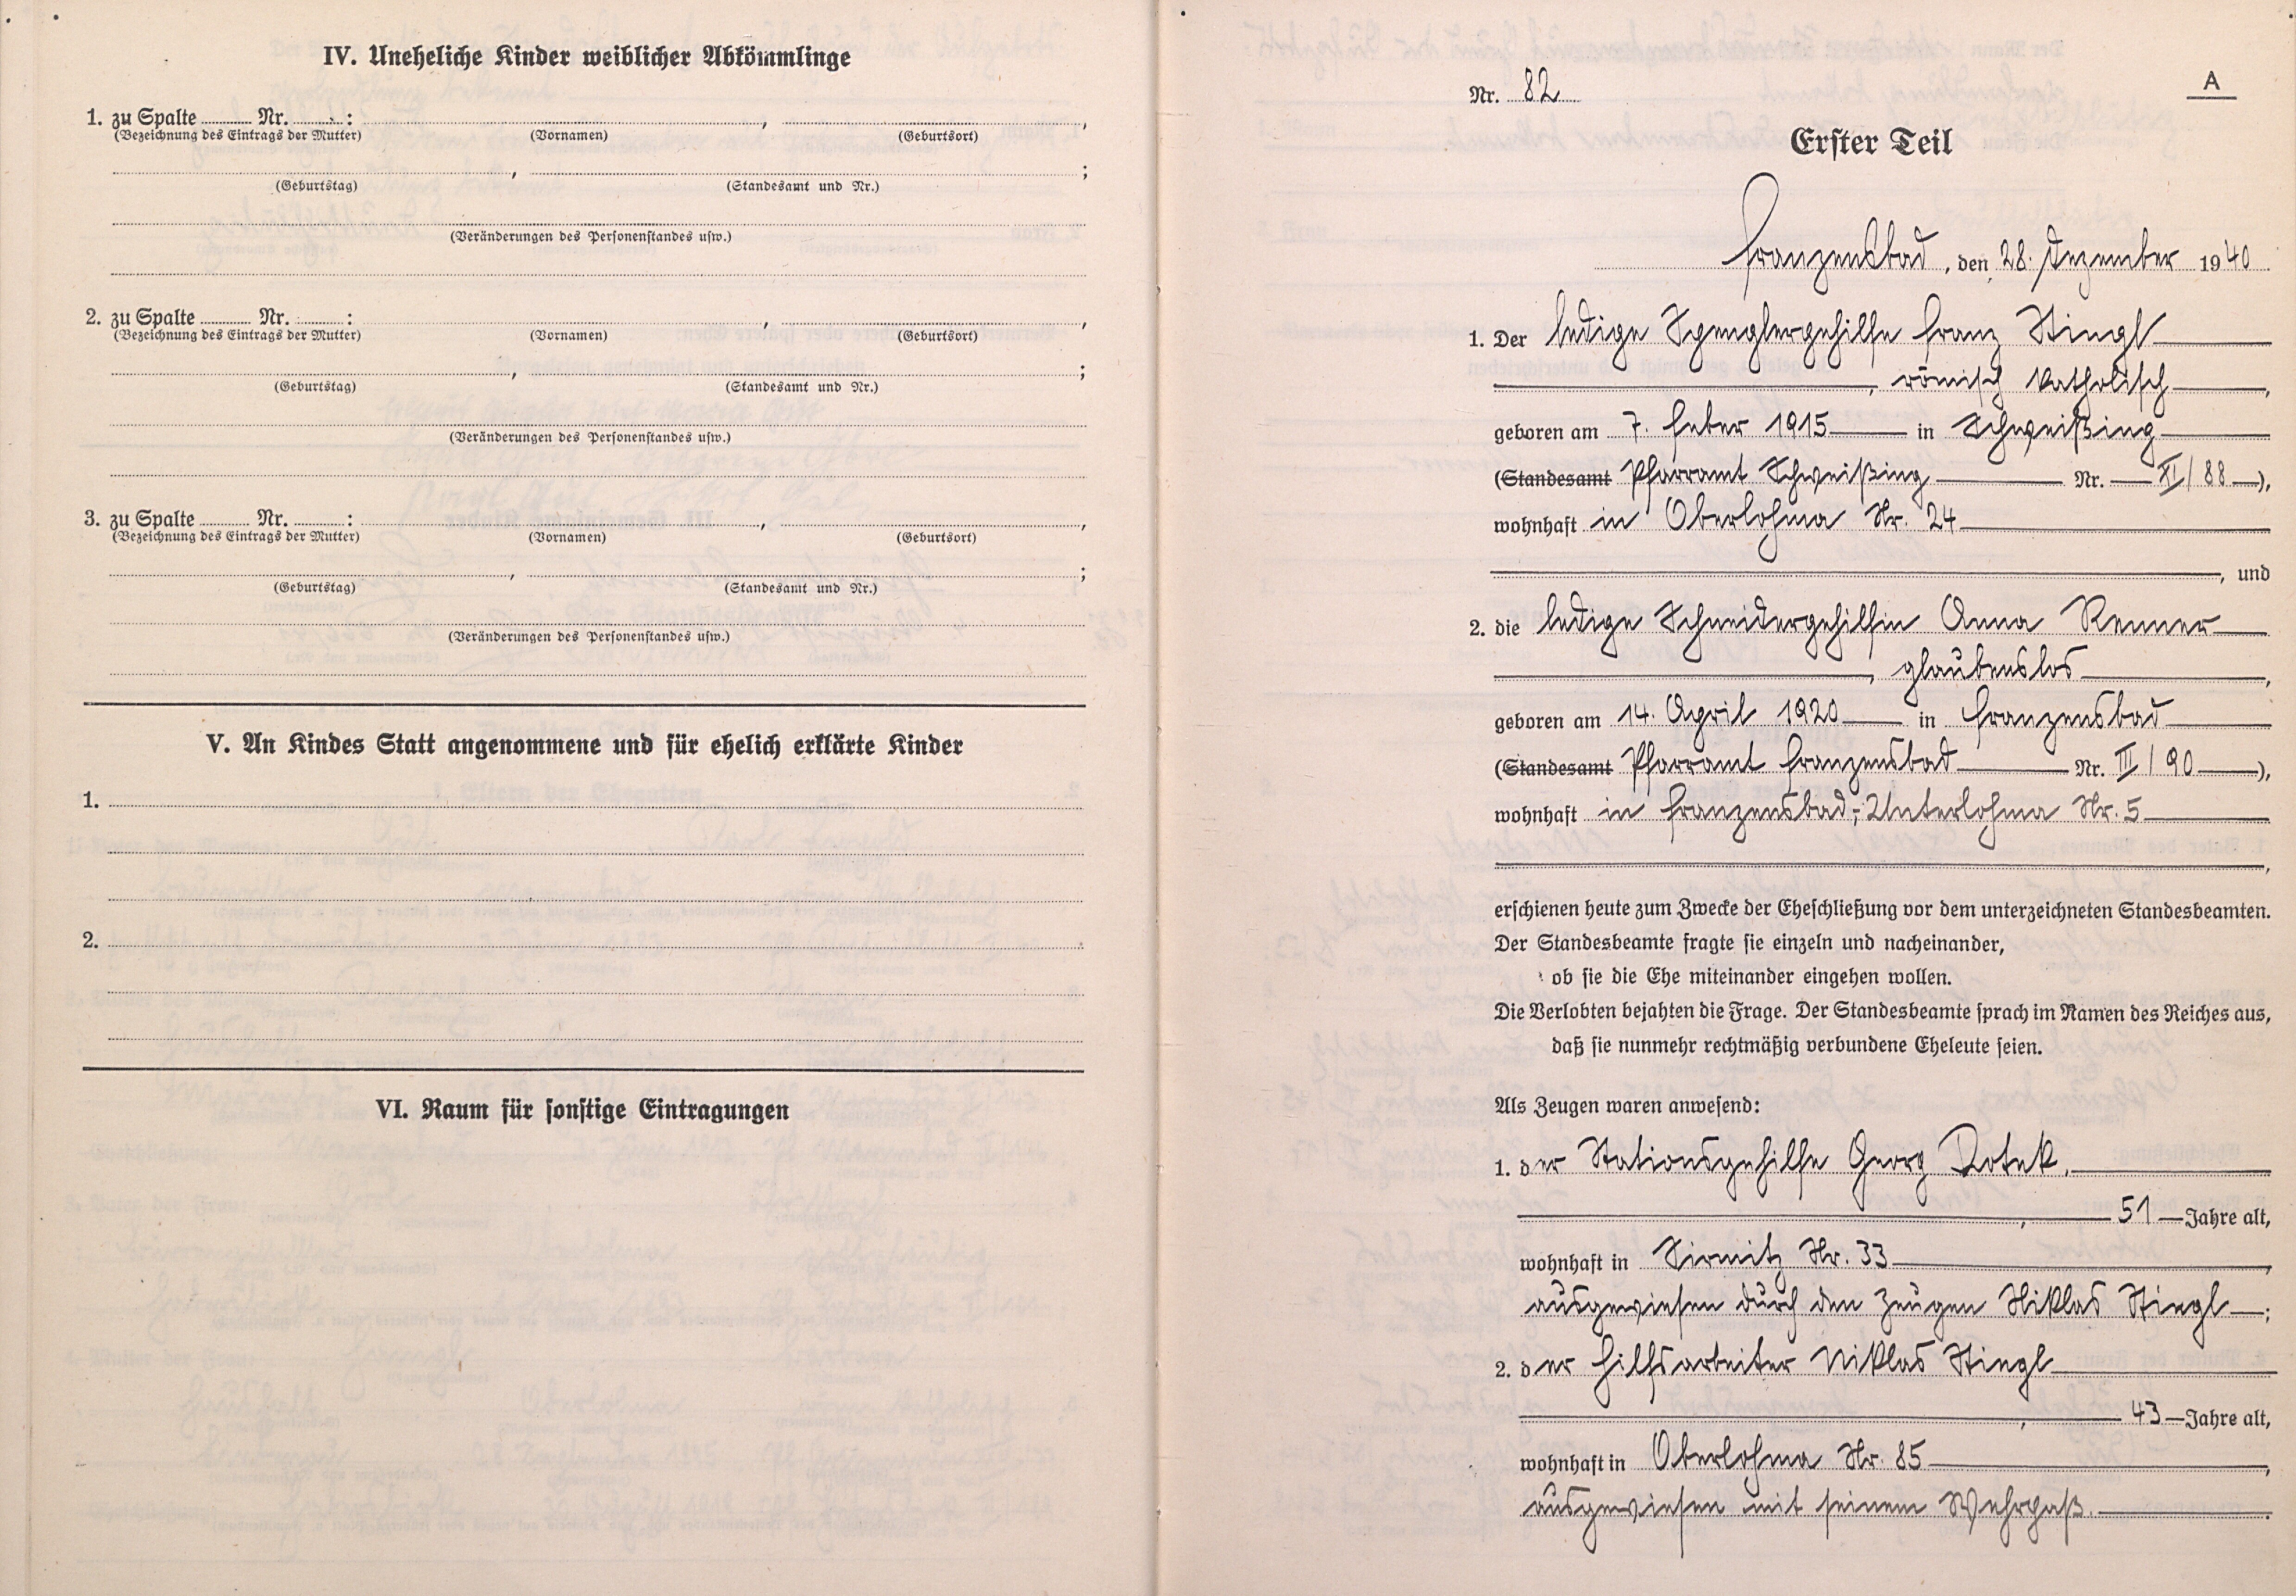 IV. Uneheliche Kinder weiblicher Abkömmlinge
1. zu Spalte Nr. : , ,
(Bezeichnung des Eintrags der Mutter) (Vornamen) (Geburtsort)
, ;
(Geburtstag) (Standesamt und Nr.)
(Veränderungen des Personenstandes usw.)
2. zu Spalte Nr. : , ,
(Bezeichnung des Eintrags der Mutter) (Vornamen) (Geburtsort)
, ;
(Geburtstag) (Standesamt und Nr.)
(Veränderungen des Personenstandes usw.)
3. zu Spalte Nr. : , ,
(Bezeichnung des Eintrags der Mutter) (Vornamen) (Geburtsort)
, ;
(Geburtstag) (Standesamt und Nr.)
(Veränderungen des Personenstandes usw.)
V. An Kindes Statt angenommene und für ehelich erklärte Kinder
1.
2.
VI. Raum für sonstige Eintragungen
A
Nr. 82
Erster Teil
Franzensbad, den 28. Dezember 1940
1. Der ledige Spenglergehilfe Franz Stingl
, römisch katholisch,
geboren am 7. Feber 1915 in Schweißing
(Standesamt Pfarramt Schweißing Nr. XI/88),
wohnhaft in Oberlohma Nr. 24
, und
2. die ledige Schneidergehilfin Anna Renner
, glaubenslos,
geboren am 14. April 1920 in Franzensbad
(Standesamt Pfarramt Franzensbad Nr. III/90),
wohnhaft in Franzensbad-Unterlohma Nr. 5
,
erschienen heute zum Zwecke der Eheschließung vor dem unterzeichneten Standesbeamten.
Der Standesbeamte fragte sie einzeln und nacheinander,
ob sie die Ehe miteinander eingehen wollen.
Die Verlobten bejahten die Frage. Der Standesbeamte sprach im Namen des Reiches aus,
daß sie nunmehr rechtmäßig verbundene Eheleute seien.
Als Zeugen waren anwesend:
1. der Stationsgehilfe Georg Dotek,
, 51 Jahre alt,
wohnhaft in Sirmitz Nr. 33,
ausgewiesen durch den Zeugen Niklas Stingl;
2. der Hilfsarbeiter Niklas Stingl
, 43 Jahre alt,
wohnhaft in Oberlohma Nr. 85,
ausgewiesen mit seinem Wehrpaß.